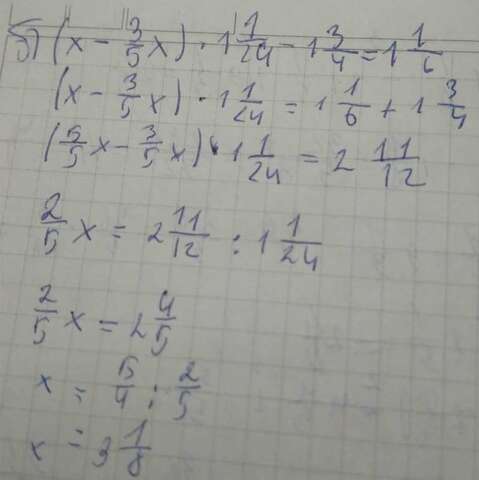 б) (x - 3/5 x) · 1 1/24 - 1 3/4 = 1 1/6
(x - 3/5 x) · 1 1/24 = 1 1/6 + 1 3/4
(5/5 x - 3/5 x) · 1 1/24 = 2 11/12
2/5 x = 2 11/12 : 1 1/24
2/5 x = 2 4/5
x = 5/4 : 2/5
x = 3 1/8